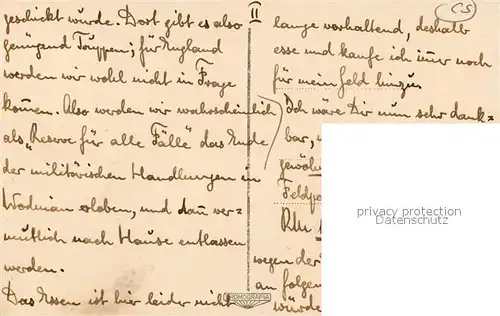 geschickt wurde. Dort gibt es also
genügend Truppen; für England
werden wir wohl nicht in Frage
kommen. Also werden wir wahrscheinlich
als „Reserve für alle Fälle" das Ende
der militärischen Handlungen in
erleben, und dann ver-
mutlich nach Hause entlassen
werden.
Das Essen ist hier leider nicht
II
lange vorhaltend, deshalb
esse und kaufe ich immer noch
für mein Geld hinzu.
Ich wäre Dir nun sehr dank-
bar,
Feldpo
wegen der
an folgen
würde
CS
privacy protection